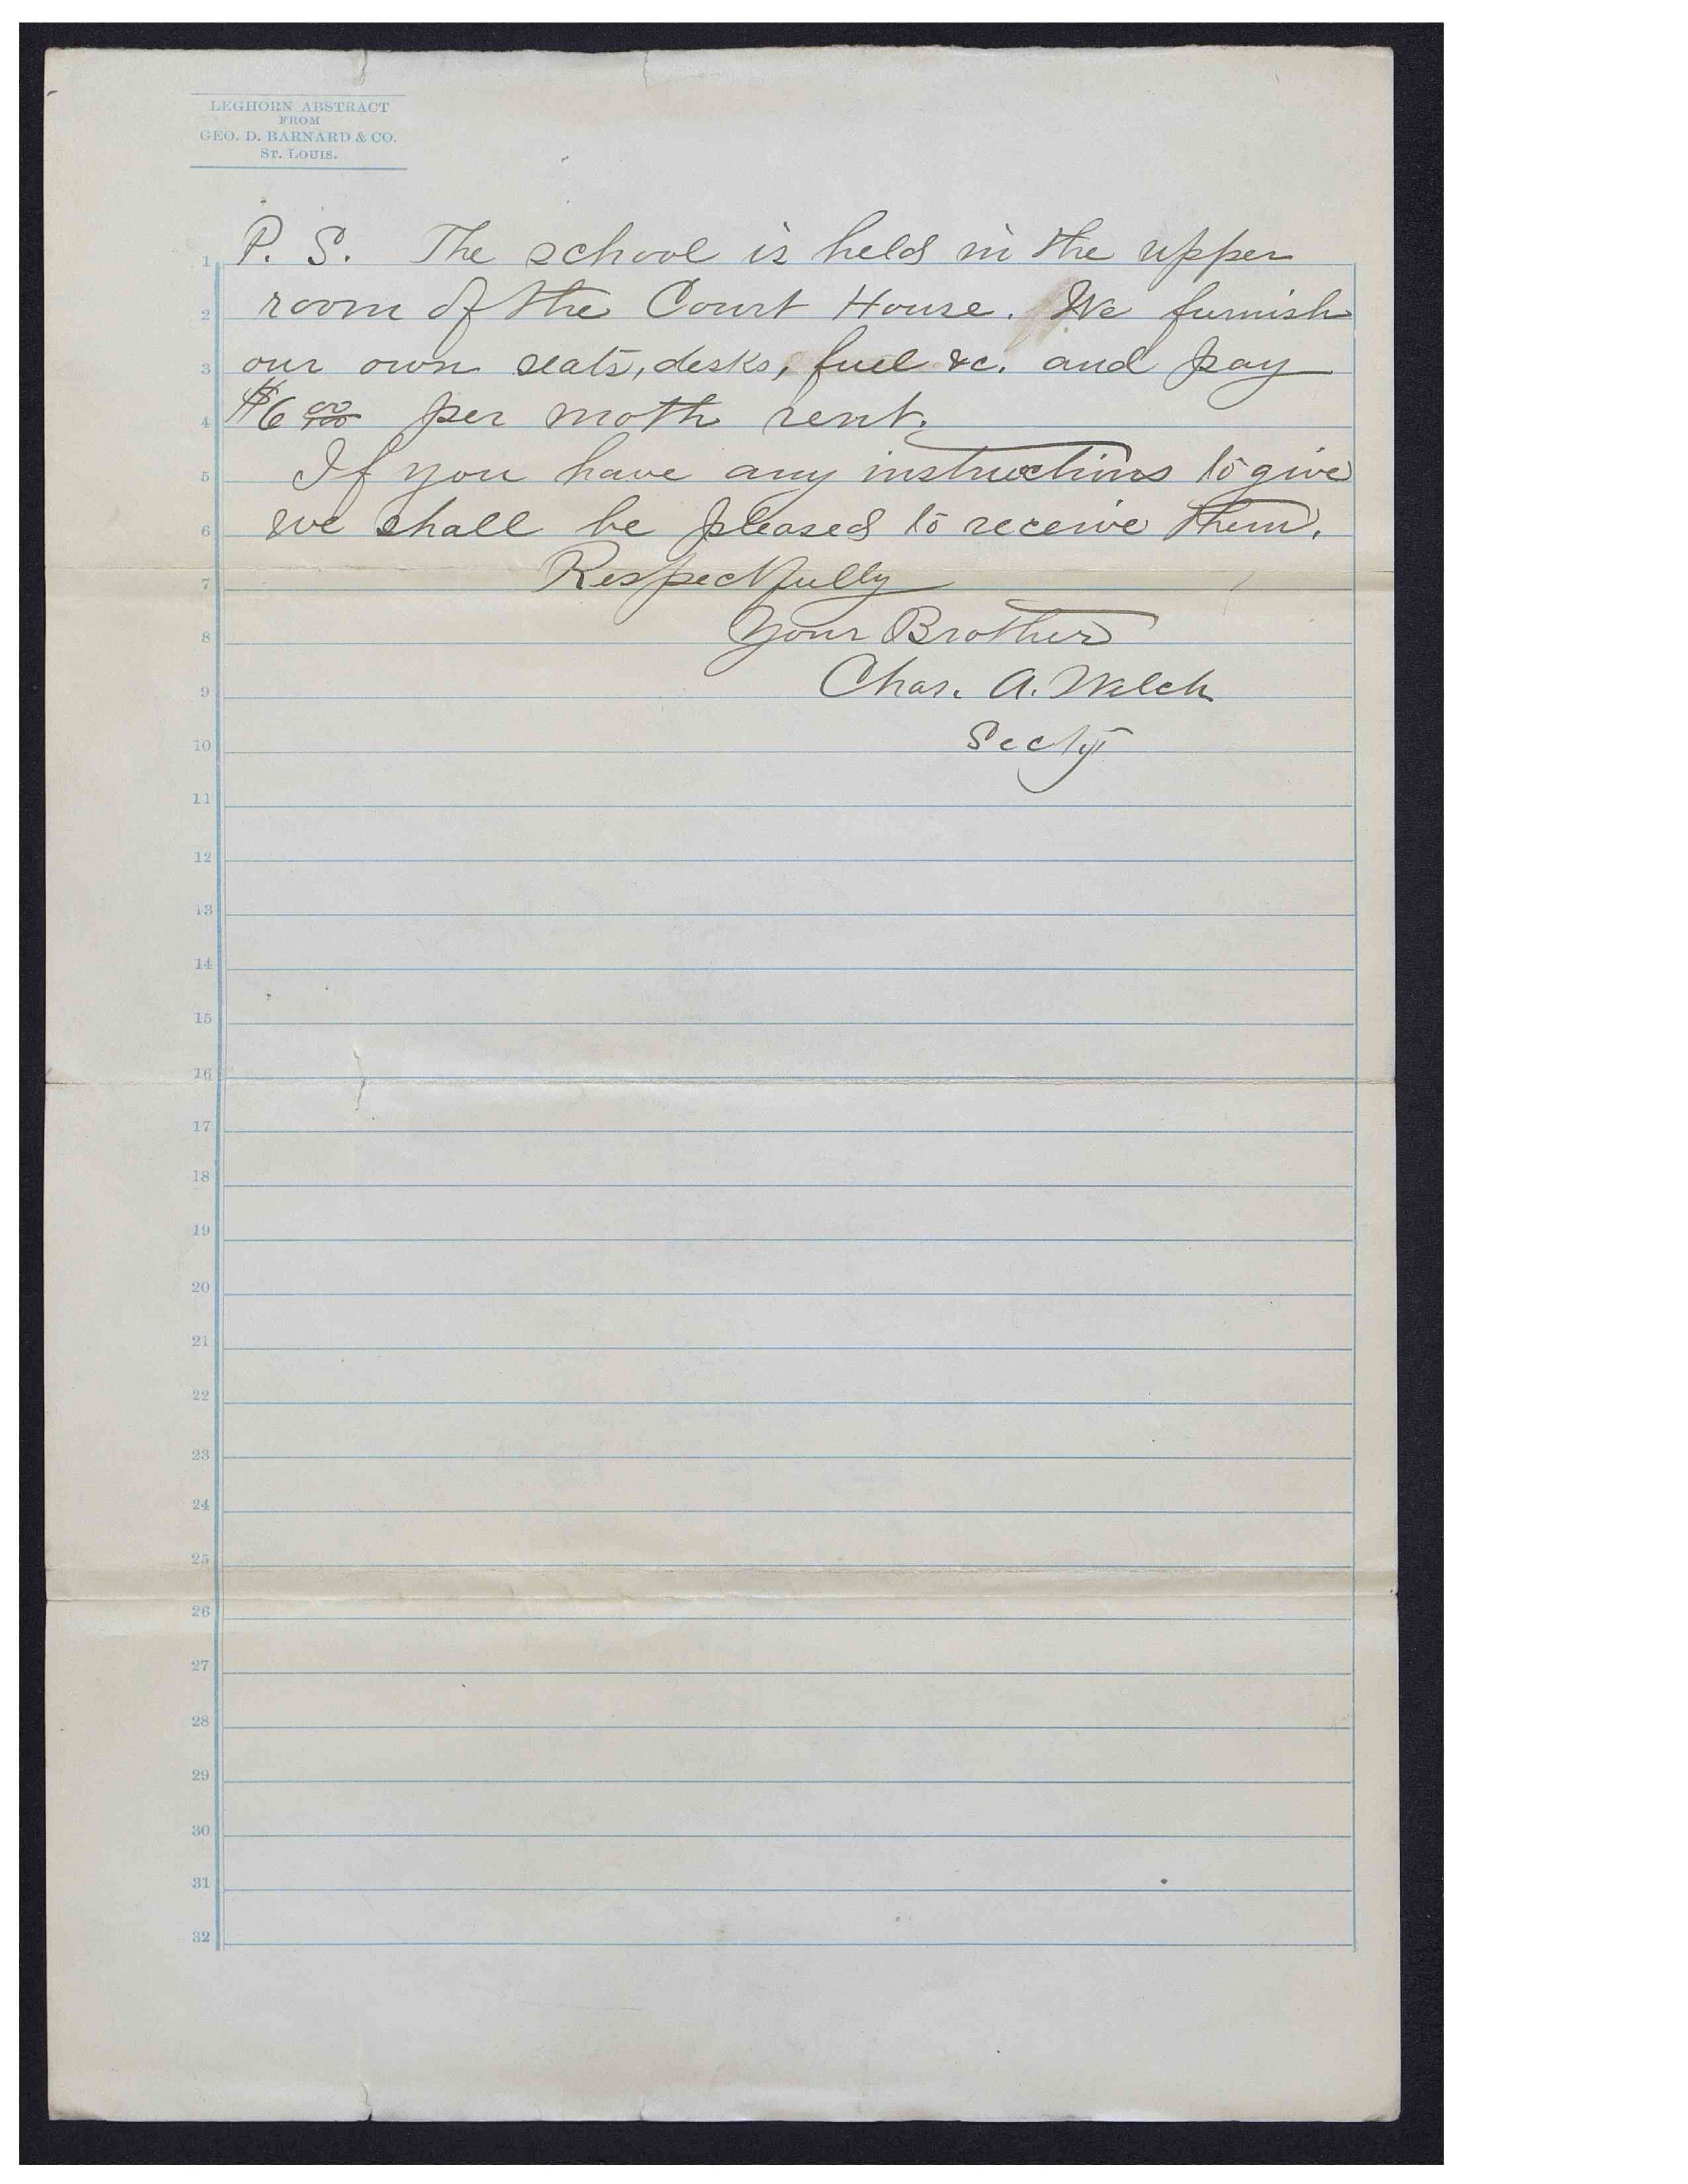 LEGHORN ABSTRACT
FROM
GEO. D. BARNARD & CO.
ST. LOUIS.
P. S. The school is held in the upper
1
room of the Court House. We furnish
2
our own seats, desks, fuel &c. and pay
3
$6 00/100 per moth rent.
4
If you have any instructions to give
5
we shall be pleased to receive them.
6
Respectfully
7
Your Brother
8
Chas. A. Welch
9
Secty
10
11
12
13
14
15
16
17
18
19
20
21
22
23
24
25
26
27
28
29
30
31
32